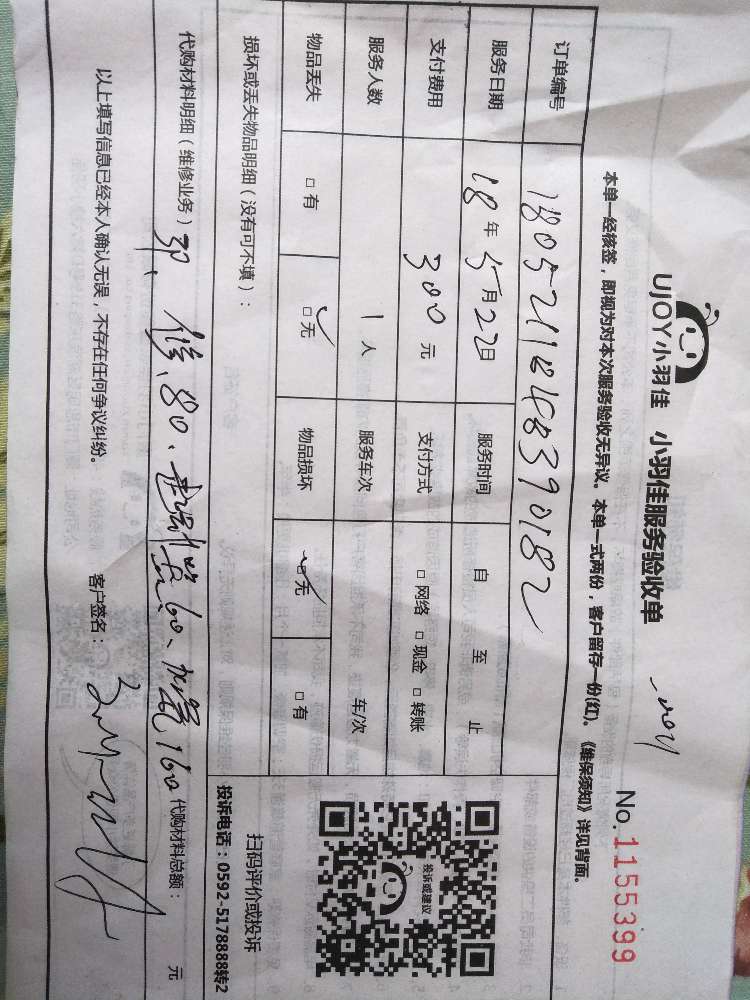 UJOY小羽佳 小羽佳服务验收单
No.1155399
本单一经核签，即视为对本次服务验收无异议。本单一式两份，客户留存一份(红)。《维保须知》详见背面。
订单编号 1805211848390182
服务日期 18年5月22日 服务时间 自 至 止
支付费用 300元 支付方式 □网络 □现金 □转账
服务人数 1人 服务车次 车/次
物品丢失 □有 □无 物品损坏 □无 □有
损坏或丢失物品明细（没有可不填）：
投诉或建议
扫码评价或投诉
投诉电话：0592-5178888转2
代购材料明细（维修业务） 修、80、 60、加氟160 代购材料总额： 元
以上填写信息已经本人确认无误，不存在任何争议纠纷。 客户签名：